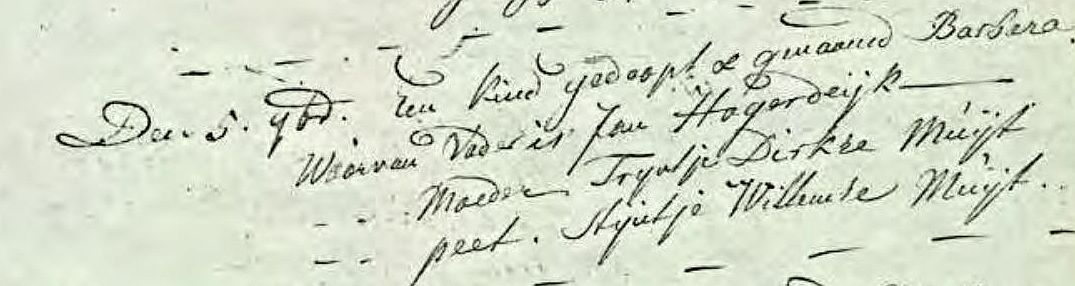 Den 5. 9br. Een kind gedoopt & genaamd Barbera.
Waarvan Vader is Jan Hogerdeijk
Moeder Tryntje Dirkse Muijt
peet. Styntje Willemse Muijt.